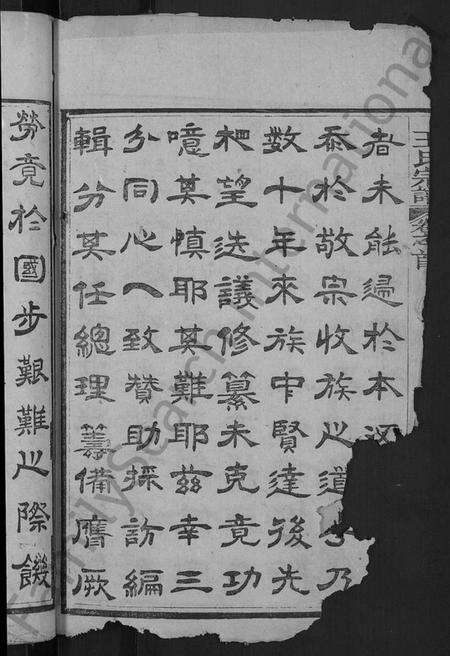 王氏宗譜 卷之首
者未能遏於本
忝於敬宗收族之道 乃
數十年來族中賢達後先
杷望迭議修纂未克竟功
噫其慎耶其難耶茲幸三
分同心一致贊助採訪編
輯分其任總理籌備膺厥
勞竟於國步艱難之際饑
FamilySearch International